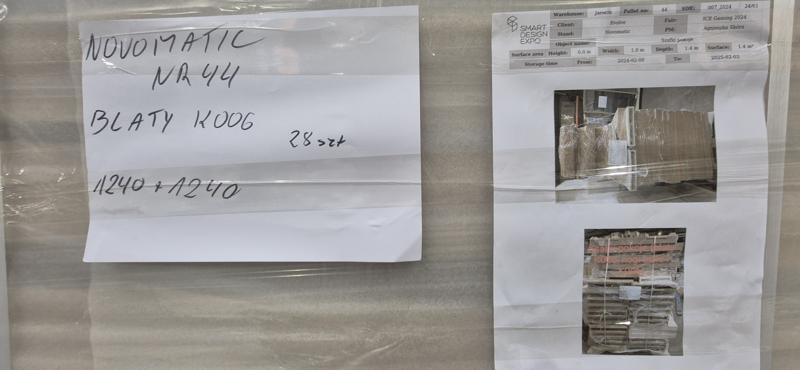 NOVOMATIC
NR 44
BLATY K006
28 szt
1240 + 1240
SMART
DESIGN
EXPO
Warehouse: Pallet no: 44 007_2024 24/01
Client: Evolve Fair: ICE Gaming 2024
Stand: Novomatic PM: Agnieszka
Object name:
Surface area Height: 0.6 m Width: 1.0 m Depth: 1.4 m Surface: 1.4 m²
Storage time From: 2024-02-09 To: 2025-02-03